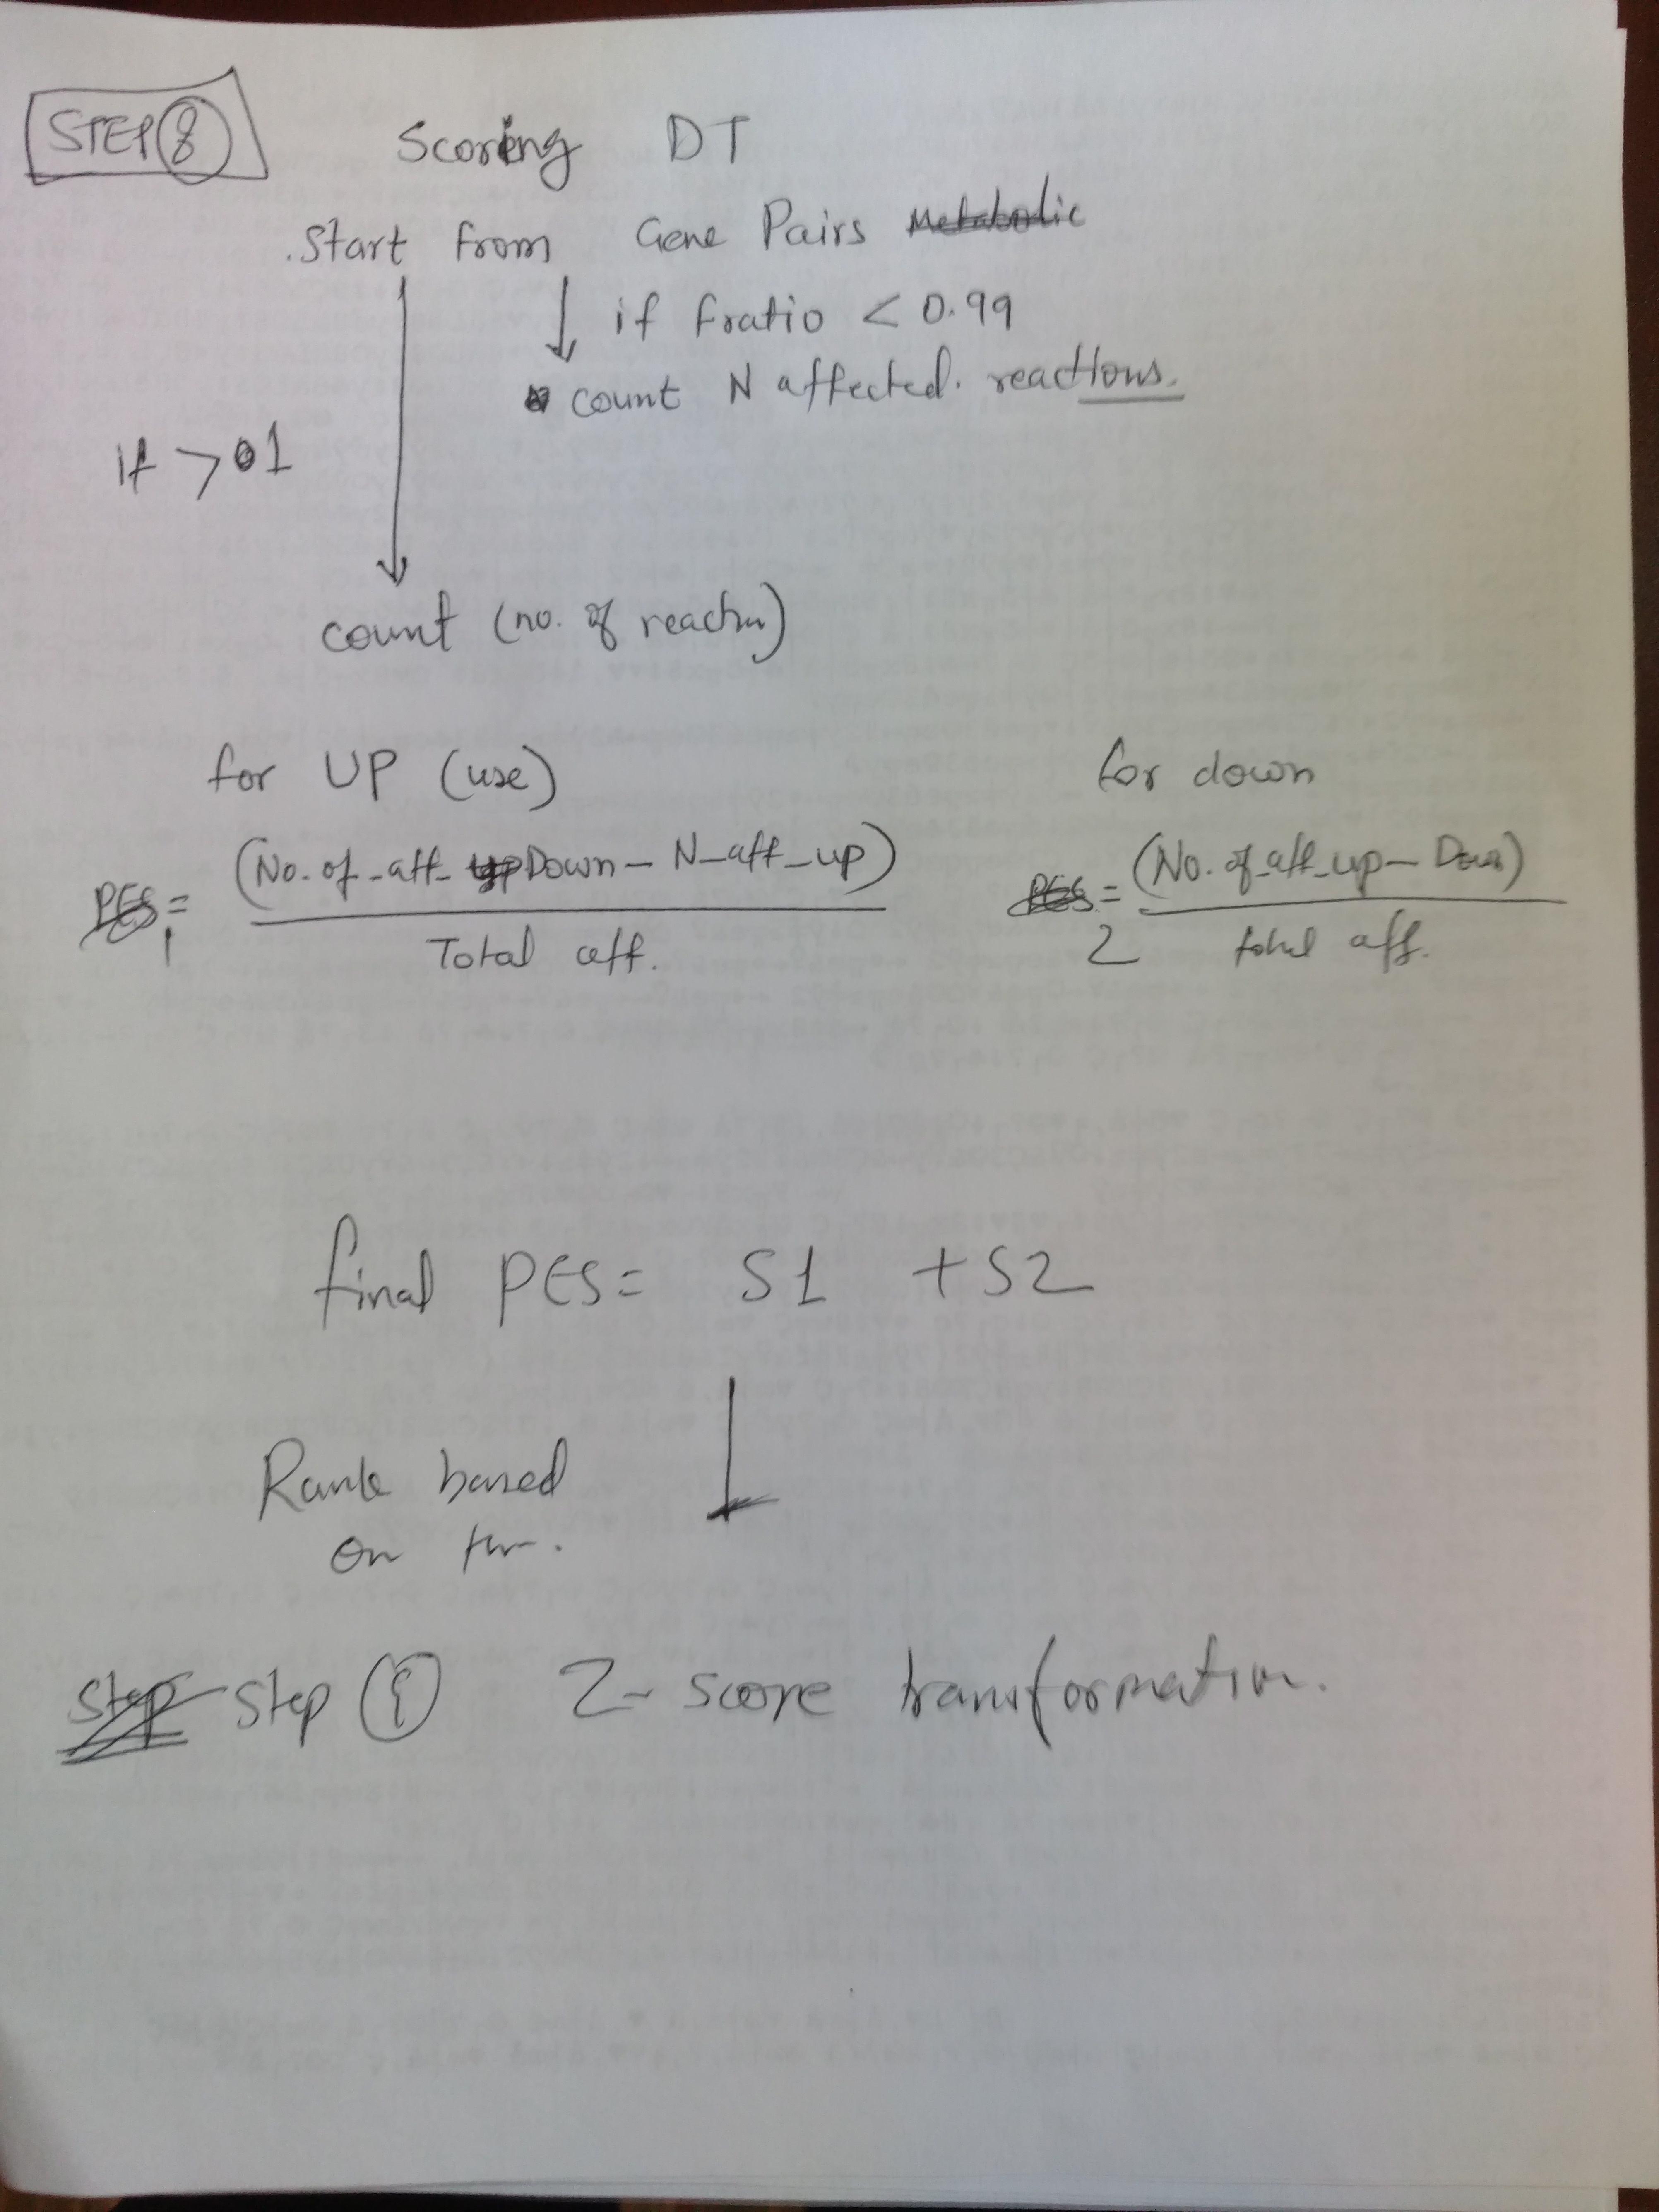 STEP 8
Scoring DT
.Start from Gene Pairs Metabolic
if fratio < 0.99
count N affected. reactions.
if > 01
count (no. of reactn)
for UP (use)
for down
PES1 = (No. of_aff_ up Down - N_aff_up)
Total aff.
PES2 = (No. of_aff_up - Down)
total aff.
final PES = S1 + S2
Rank based
on
Step Step 9 Z-score transformation.